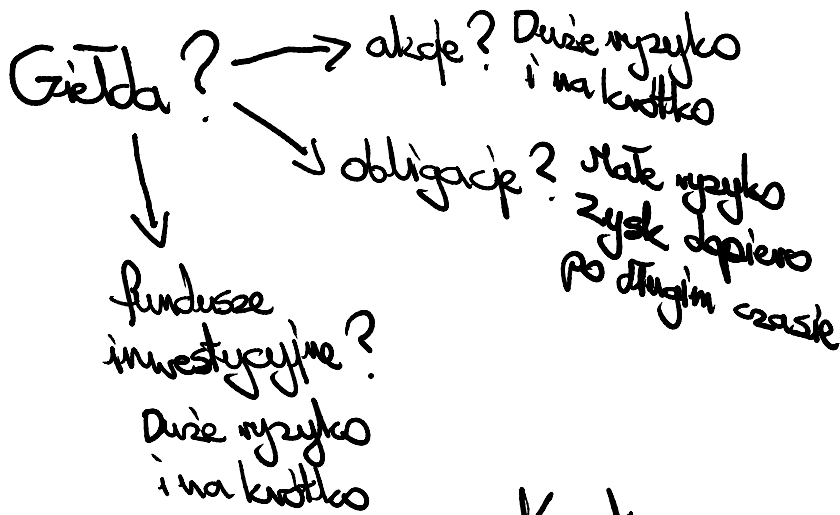 Giełda?
akcje? Duże ryzyko
i na krótko
obligacje? Małe ryzyko
Zysk dopiero
po długim czasie
fundusze
inwestycyjne?
Duże ryzyko
i na krótko